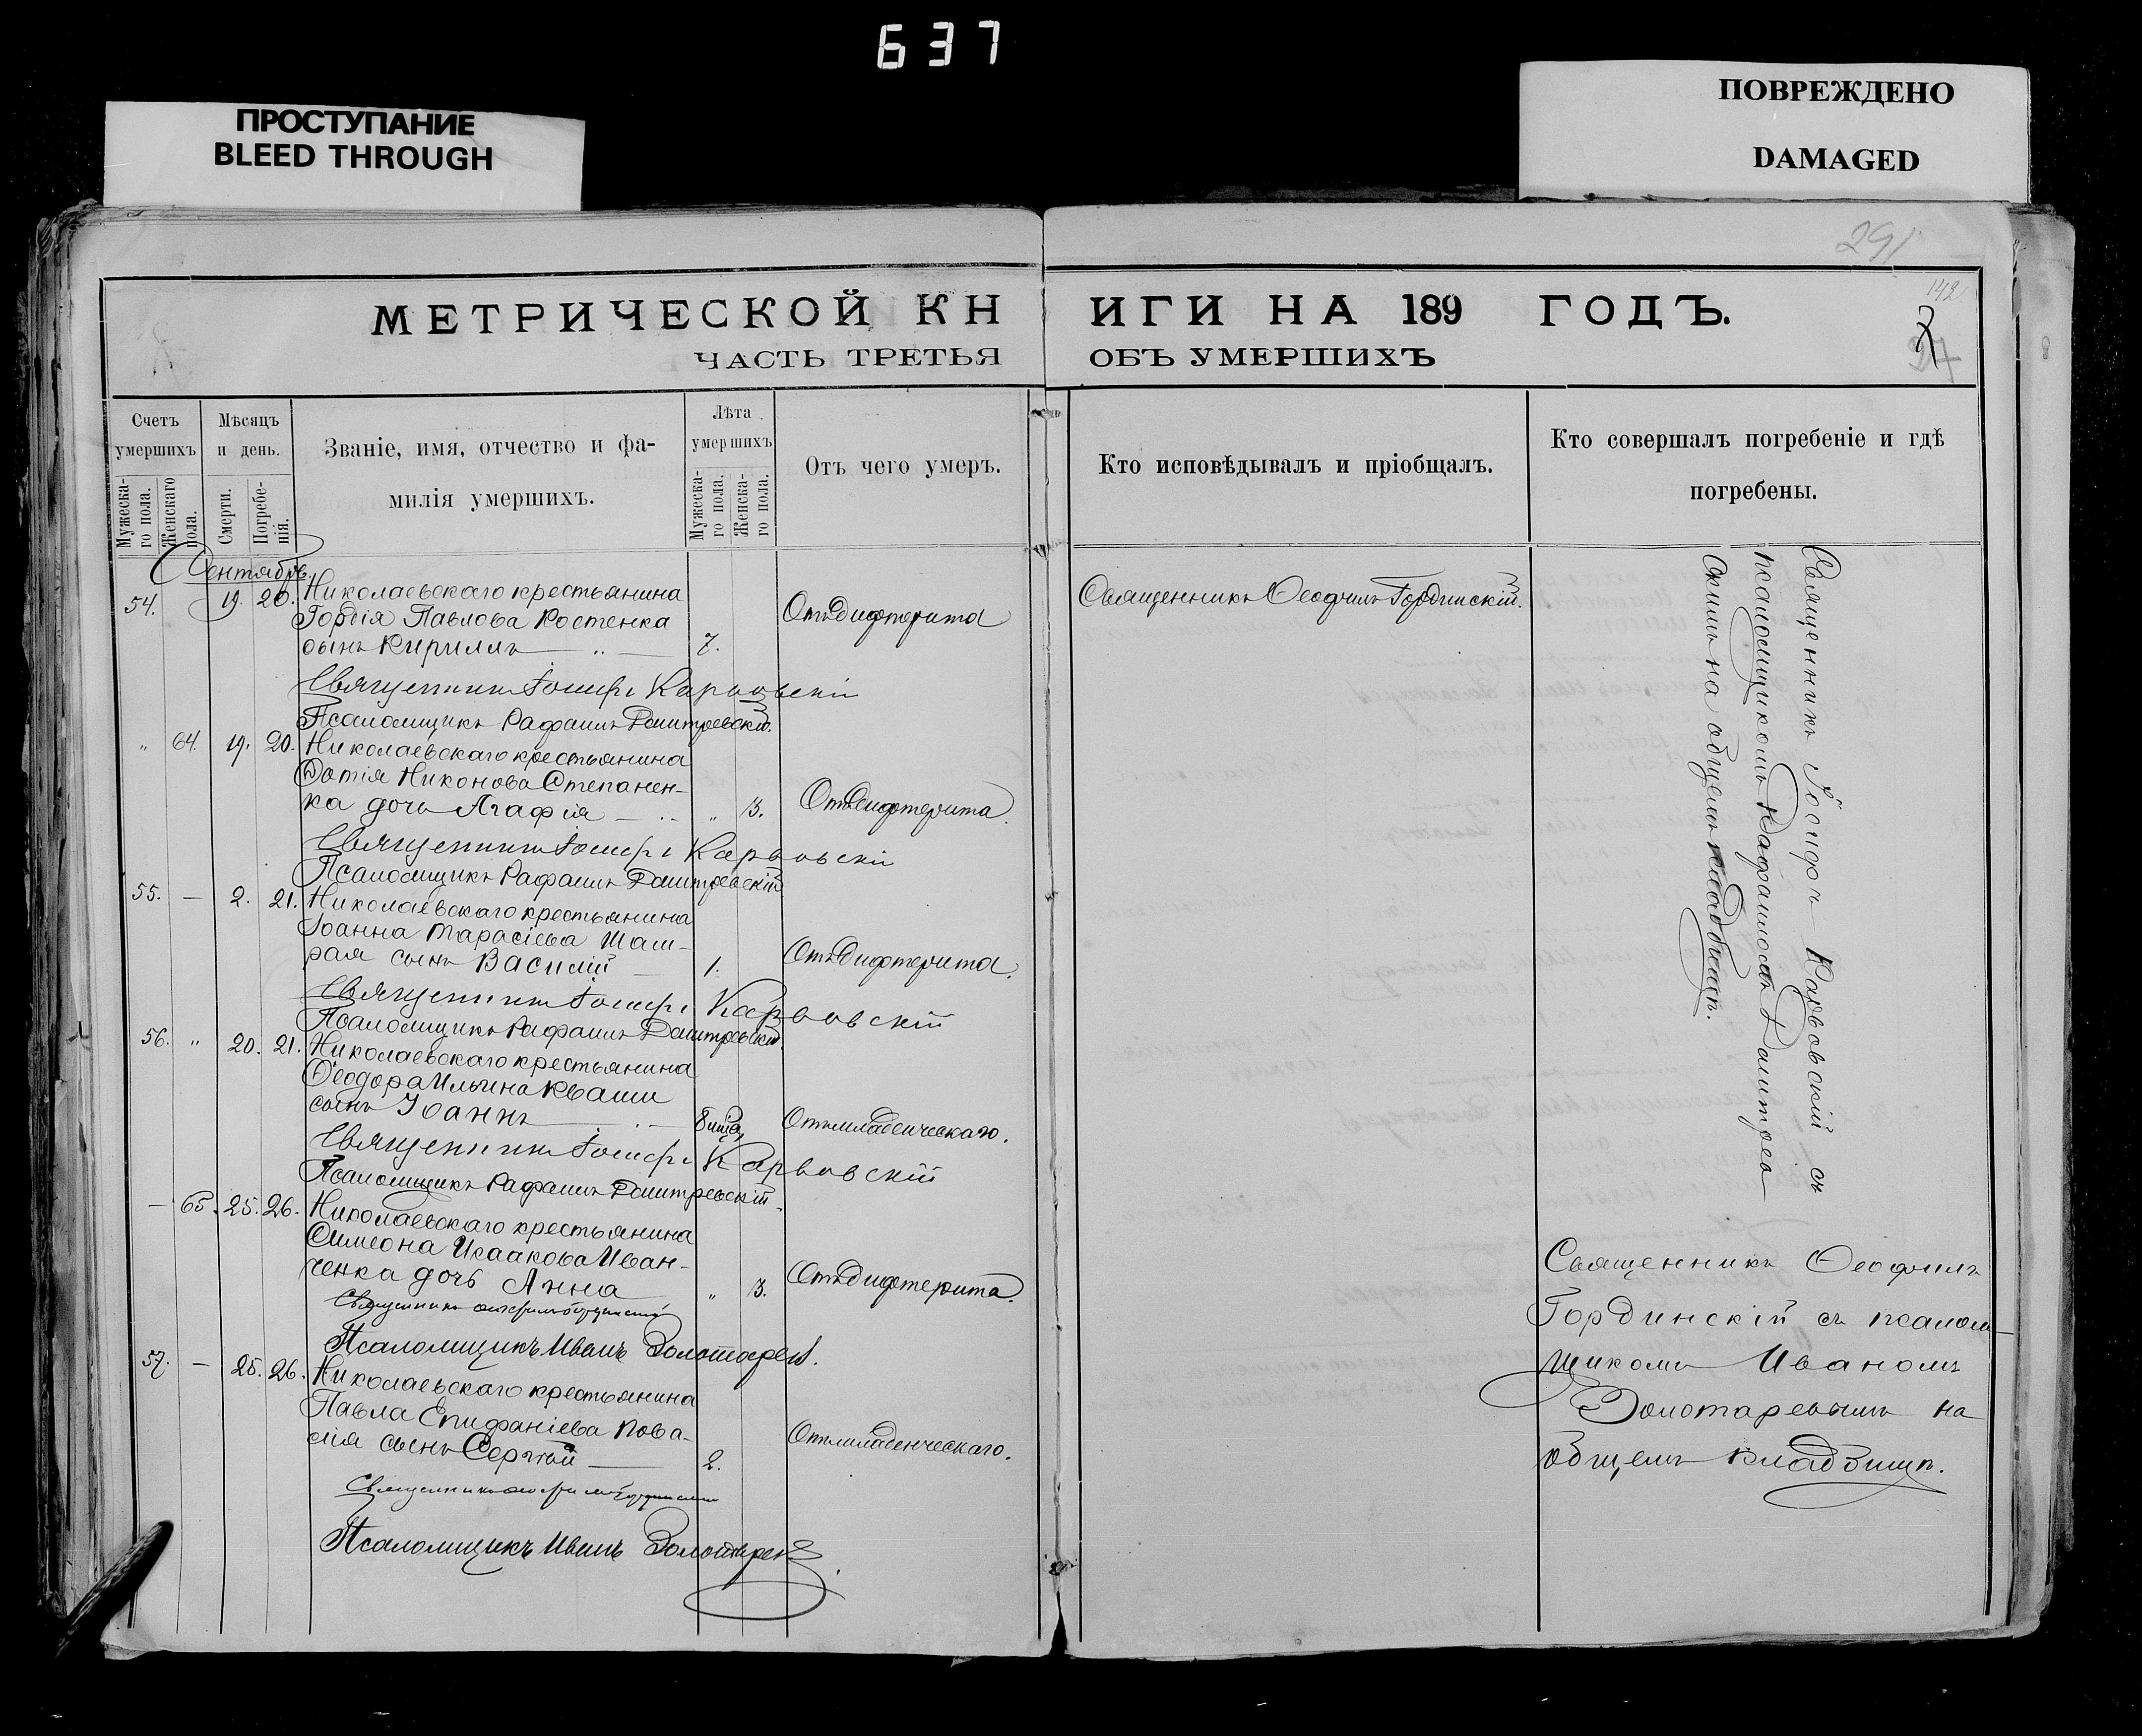 637
ПРОСТУПАНИЕ
BLEED THROUGH
ПОВРЕЖДЕНО
DAMAGED
291
142
МЕТРИЧЕСКОЙ КНИГИ НА 189 ГОДЪ.
ЧАСТЬ ТРЕТЬЯ ОБЪ УМЕРШИХЪ
Счетъ умершихъ
Мужеска-го пола.
Женскаго пола.
Мѣсяцъ и день.
Смерти.
Погребе-нія.
Званіе, имя, отчество и фа-
милія умершихъ.
Лѣта умершихъ
Мужеска-го пола.
Женска-го пола.
Отъ чего умеръ.
Кто исповѣдывалъ и пріобщалъ.
Кто совершалъ погребеніе и гдѣ
погребены.
Сентябрь
54. 19. 20. Николаевскаго крестьянина
Гордія Павлова Костенка
сынъ Кириллъ 7. Отъ дифтерита
Священникъ Ѳеофилъ Гординскій.
Священникъ Іосифъ Карвовскій
Псаломщикъ Рафаилъ Дмитревскій.
„ 64. 19. 20. Николаевскаго крестьянина
Фотія Никонова Степанен-
ка дочь Агафія „ 3. Отъ дифтерита.
Священникъ Іосифъ Карвовскій
Псаломщикъ Рафаилъ Дмитревскій
55. — 2. 21. Николаевскаго крестьянина
Іоанна Тарасіева Шам-
рая сынъ Василій 1. Отъ дифтерита.
Священникъ Іосифъ Карвовскій
Псаломщикъ Рафаилъ Дмитревскій.
56. „ 20. 21. Николаевскаго крестьянина
Ѳеодора Ильина Кваши
сынъ Іоаннъ 8 Отъ младенческаго.
Священникъ Іосифъ Карвовскій
Псаломщикъ Рафаилъ Дмитревскій.
— 65. 25. 26. Николаевскаго крестьянина
Симеона Исаакова Иван-
ченка дочь Анна „ 3. Отъ дифтерита.
Священникъ Ѳеофилъ Гординскій
Псаломщикъ Иванъ Золотаревъ.
57. — 25. 26. Николаевскаго крестьянина
Павла Епифаніева
сынъ Сергѣй 2. Отъ младенческаго.
Священникъ Ѳеофилъ Гординскій
Псаломщикъ Иванъ Золотаревъ
Священникъ Іосифъ Карвовскій съ
псаломщикомъ Рафаиломъ Дмитрев-
скимъ на общемъ кладбищѣ.
Священникъ Ѳеофилъ
Гординскій съ псалом-
щикомъ Иваномъ
Золотаревымъ на
общемъ кладбищѣ.